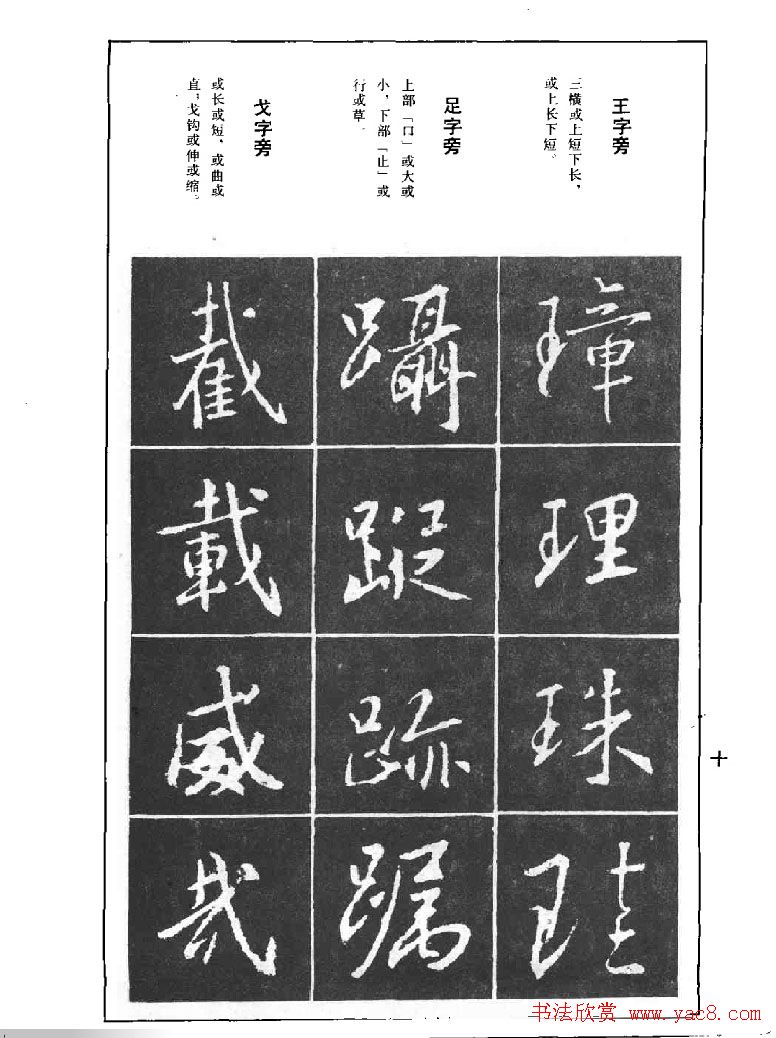 王字旁
三横或上短下长，
或上长下短。
足字旁
上部「口」或大或
小，下部「止」或
行或草。
戈字旁
或长或短，或曲或
直；戈钩或伸或缩。
璋理珠珪
躡蹤跡
截載威哉
十
书法欣赏 www.yac8.com